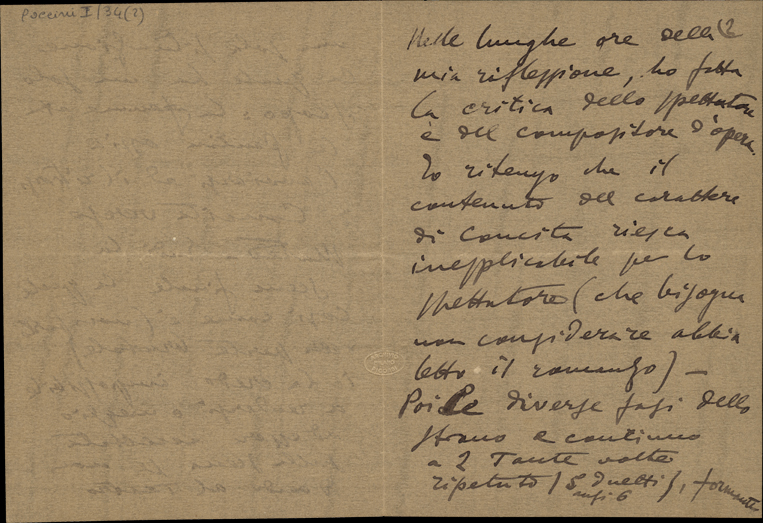 Puccini I/34(2)
(2
Nelle lunghe ore della
mia riflessione, ho fatta
la critica dello spettatore
e del compositore d'opera.
Io ritengo che il
contenuto del carattere
di Concita riesca
inesplicabile per lo
spettatore (che bisogna
non considerare abbia
letto il romanzo) —
Poi Le diverse fasi dello
strano e continuo
a 2 Tante volte
ripetuto (5 Duetti), formante
anzi 6